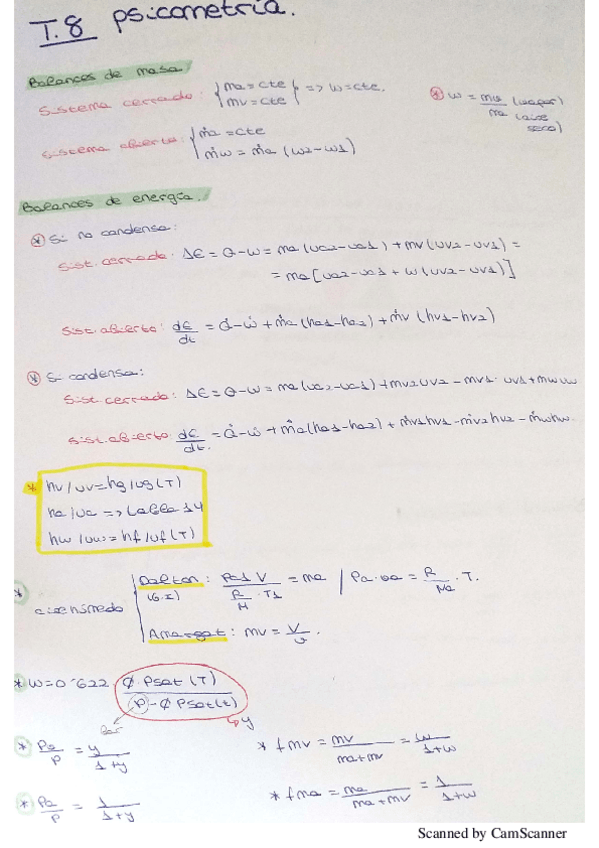 T.8 psicometría.
Balances de masa:
Sistema cerrado: { ma = cte
mv = cte } => w = cte.
* w = mv / ma (vapor) (aire seco)
Sistema abierto: { ṁa = cte
ṁw = ṁa (w2 - w1)
Balances de energía.
* Si no condensa:
Sist. cerrado: ΔE = Q - W = ma (ua2 - ua1) + mv (uv2 - uv1) =
= ma [ua2 - ua1 + w (uv2 - uv1)]
Sist. abierto: dE/dt = Q̇ - Ẇ + ṁa (ha1 - ha2) + ṁv (hv1 - hv2)
* Si condensa:
Sist. cerrado: ΔE = Q - W = ma (ua2 - ua1) + mv2 uv2 - mv1 · uv1 + mw uw
Sist. abierto: dE/dt. = Q̇ - Ẇ + ṁa (ha1 - ha2) + ṁv1 hv1 - ṁv2 hv2 - ṁw hw.
* hv / uv = hg / ug (T)
ha / ua => tabla 14
hw / uw = hf / uf (T)
* aire húmedo
Dalton: (G.I) Pa1 V / (R/M · T1) = ma / Pa · va = R/Ma · T.
Amagat: mv = V/v.
* W = 0'622 · ∅ · Psat (T) / P - ∅ Psat (t)
bar
y
* Pa/P = y / 1+y
* fmv = mv / ma + mv = w / 1+w
* Pa/P = 1 / 1+y
* fma = ma / ma + mv = 1 / 1+w
Scanned by CamScanner